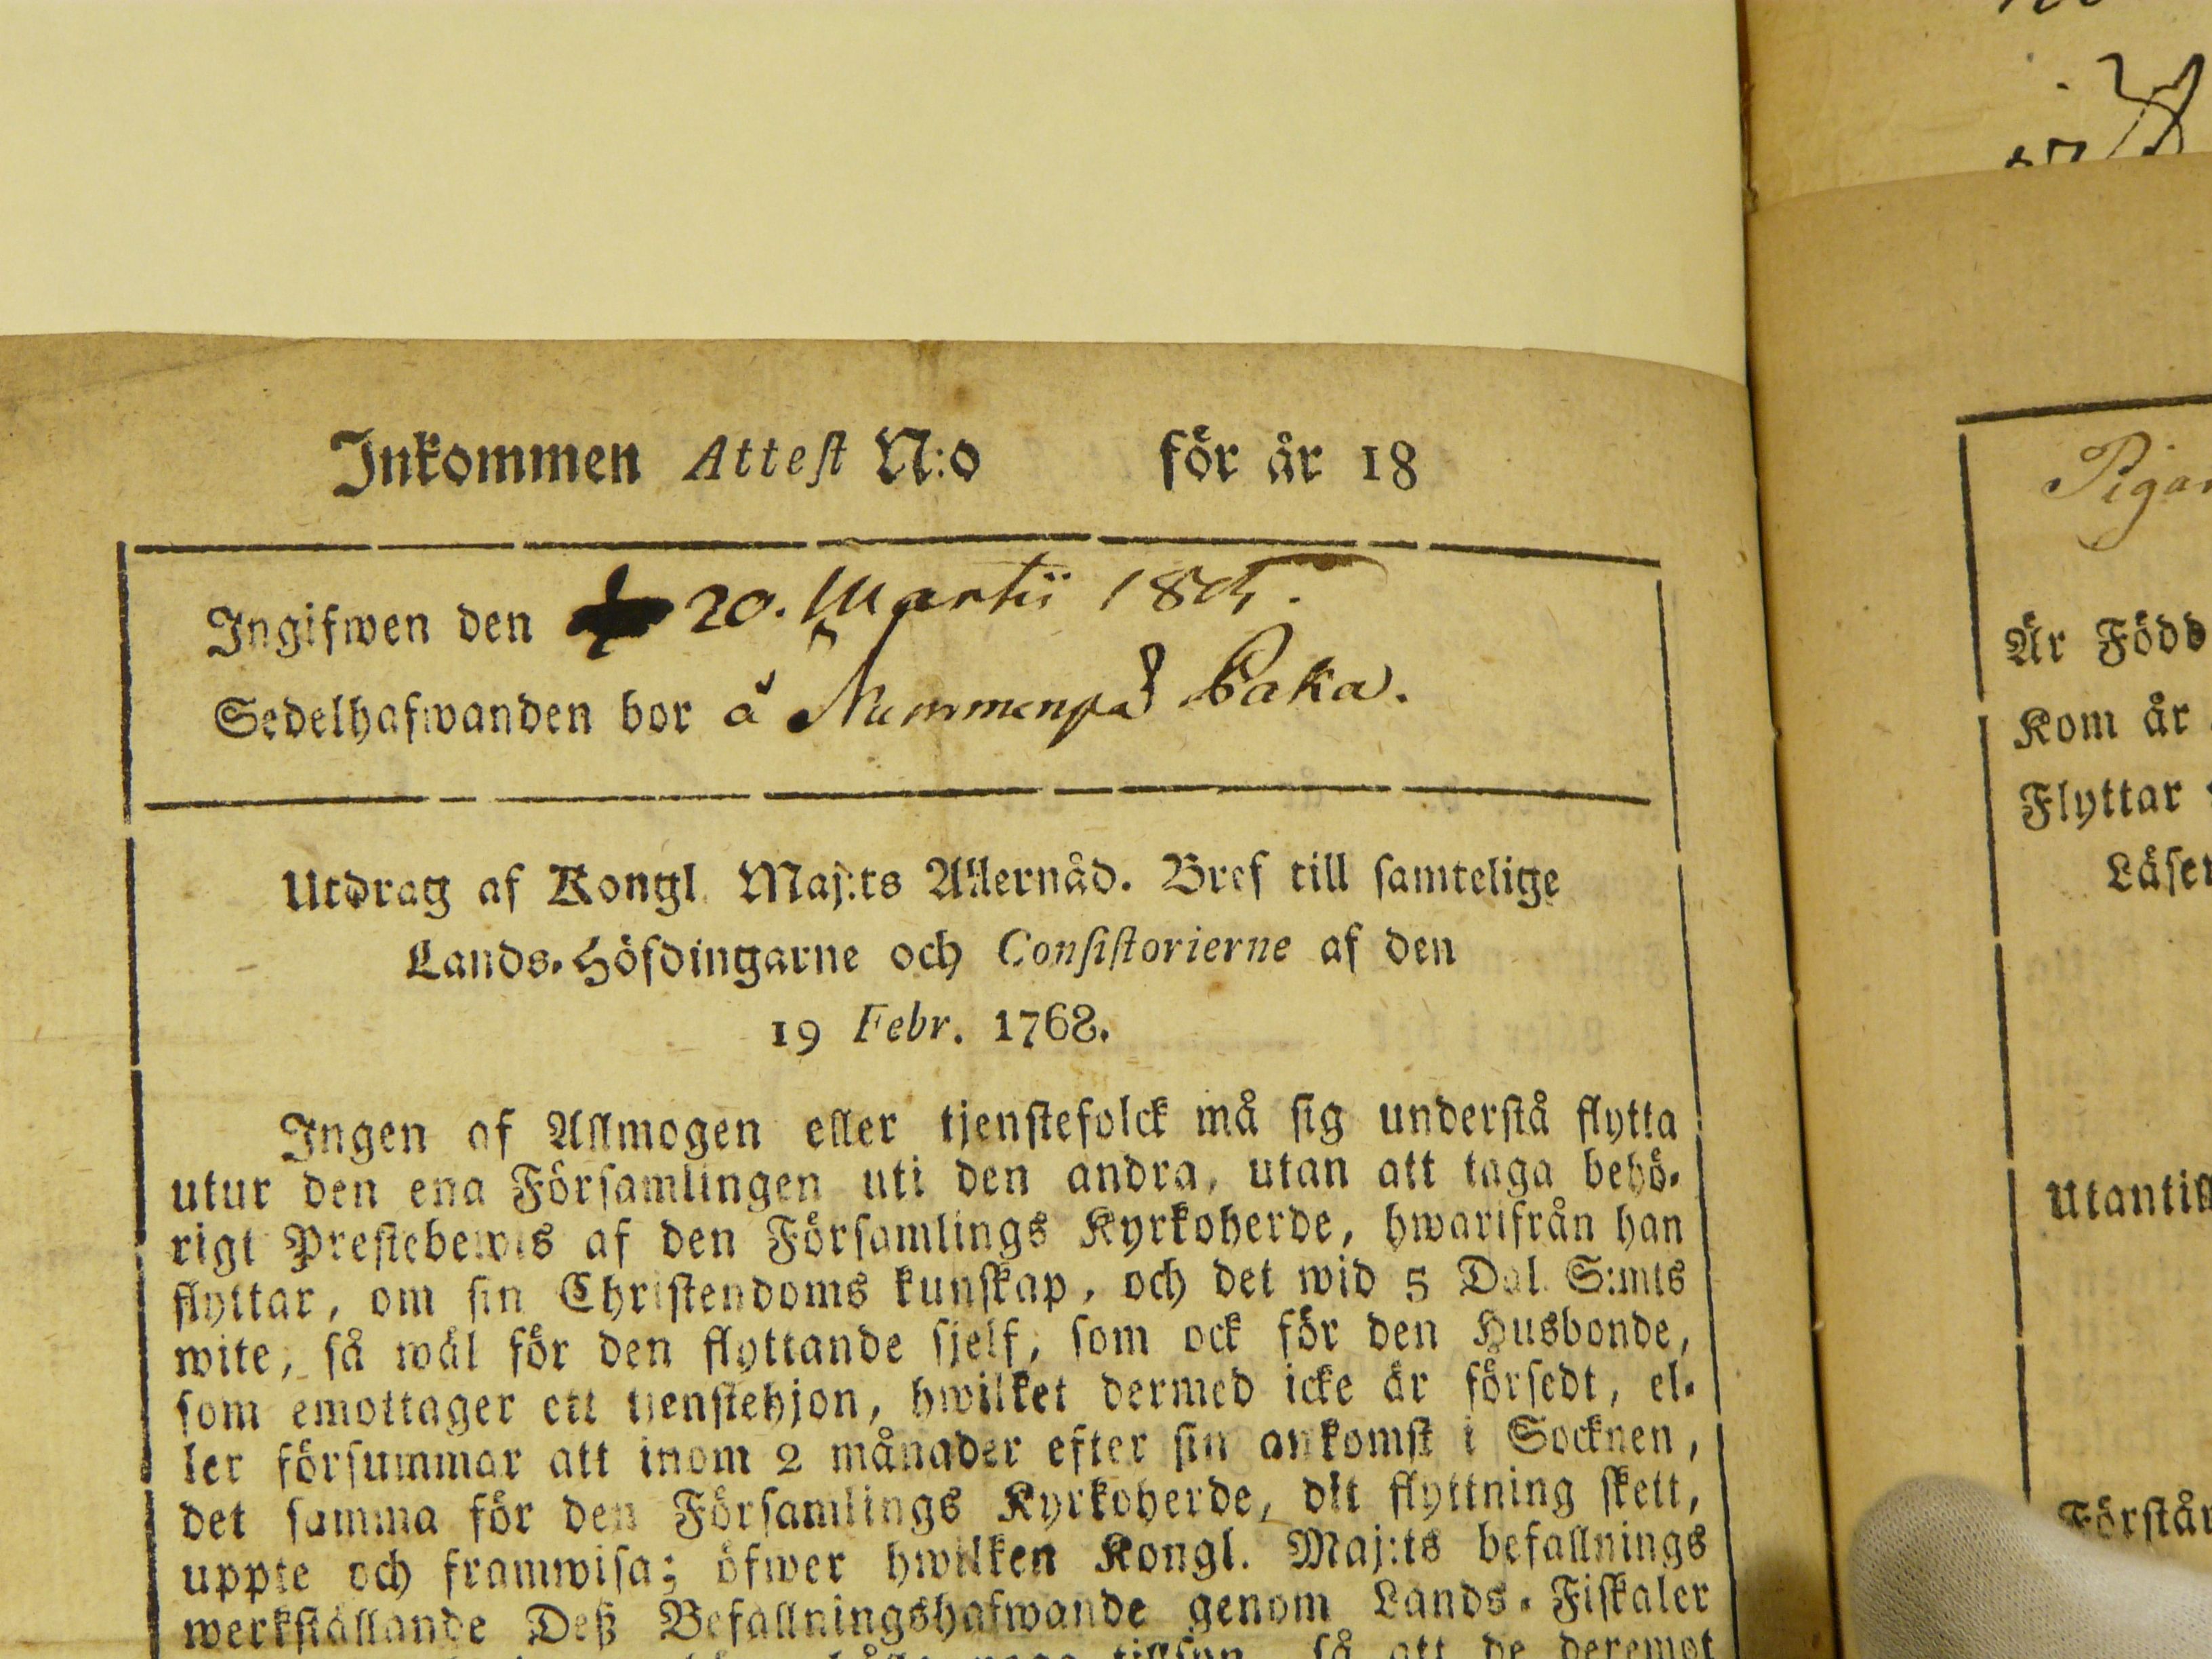 Inkommen Attest N:o för år 18
Ingifwen den 20. Martii
Sedelhafwanden bor å Nummenpå Baka.
Utdrag af Kongl. Maj:ts Allernåd. Bref till samtelige
Lands-Höfdingarne och Consistorierne af den
19 Febr. 1768.
Ingen af Allmogen eller tjenstefolck må sig understå flytta
utur den ena Församlingen uti den andra, utan att taga behö-
rigt Prestebewis af den Församlings Kyrkoherde, hwarifrån han
flyttar, om sin Christendoms kunskap, och det wid 5 Dal. S:mts
wite, så wäl för den flyttande sjelf, som ock för den Husbonde,
som emottager ett tjenstehjon, hwilket dermed icke är försedt, el-
ler försummar att inom 2 månader efter sin ankomst i Socknen,
det samma för den Församlings Kyrkoherde, dit flyttning skett,
uppte och framwisa; öfwer hwilken Kongl. Maj:ts befallnings
werkställande Deß Befallningshafwande genom Lands-Fiskaler
så att de deremot
Pigan
Är Född
Kom år
Flyttar
Läser
Utantill
Förstår